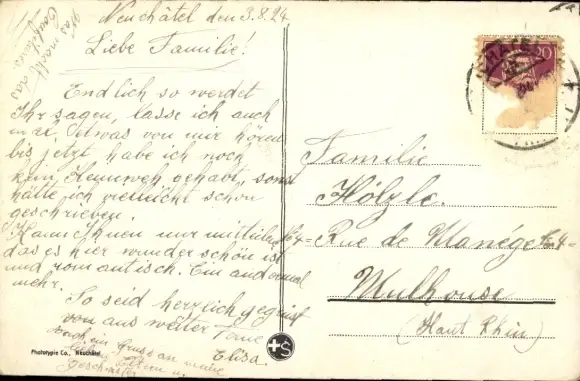 Neuchâtel den 3.8.24
Liebe Familie!
Endlich so werdet
Ihr sagen, lasse ich auch
mal etwas von mir hören
bis jetzt habe ich noch
kein Heimweh gehabt, sonst
hätte ich vielleicht schon
geschrieben.
Kann Ihnen nur mitteilen
das es hier wunderschön ist
und romantisch. Ein andermal
mehr.
So seid herzlich gegrüsst
von aus weiter Ferne
Elisa.
Noch ein Gruss an meine
Eltern u.
Geschwister
Das macht
das
20
Familie
Hölzle.
№4= Rue de Manége №4=
Mulhouse
(Haut Rhin)
Phototypie Co., Neuchâtel
+S